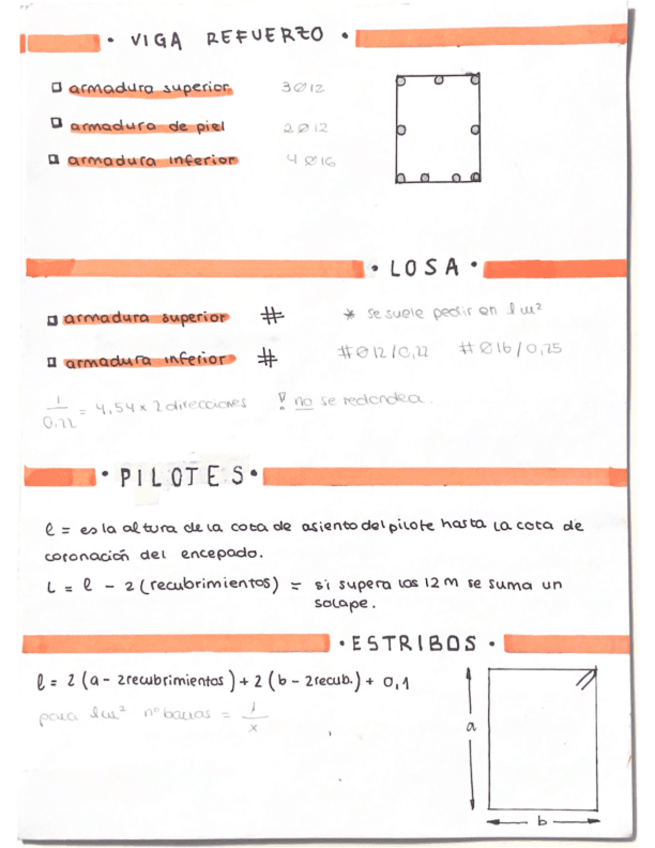 • VIGA REFUERZO •
armadura superior 3∅12
armadura de piel 2∅12
armadura inferior 4∅16
• LOSA •
armadura superior # * se suele pedir en 1m²
armadura inferior # #∅12/0,22 #∅16/0,25
1/0,22 = 4,54 x 2 direcciones ! no se redondea.
• PILOTES •
l = es la altura de la cota de asiento del pilote hasta la cota de
coronación del encepado.
L = l - 2 (recubrimientos) = si supera los 12 m se suma un
solape.
• ESTRIBOS •
l = 2 (a - 2recubrimientos) + 2 (b - 2recub.) + 0,1
para 1m² nº barras = 1/x
a
b